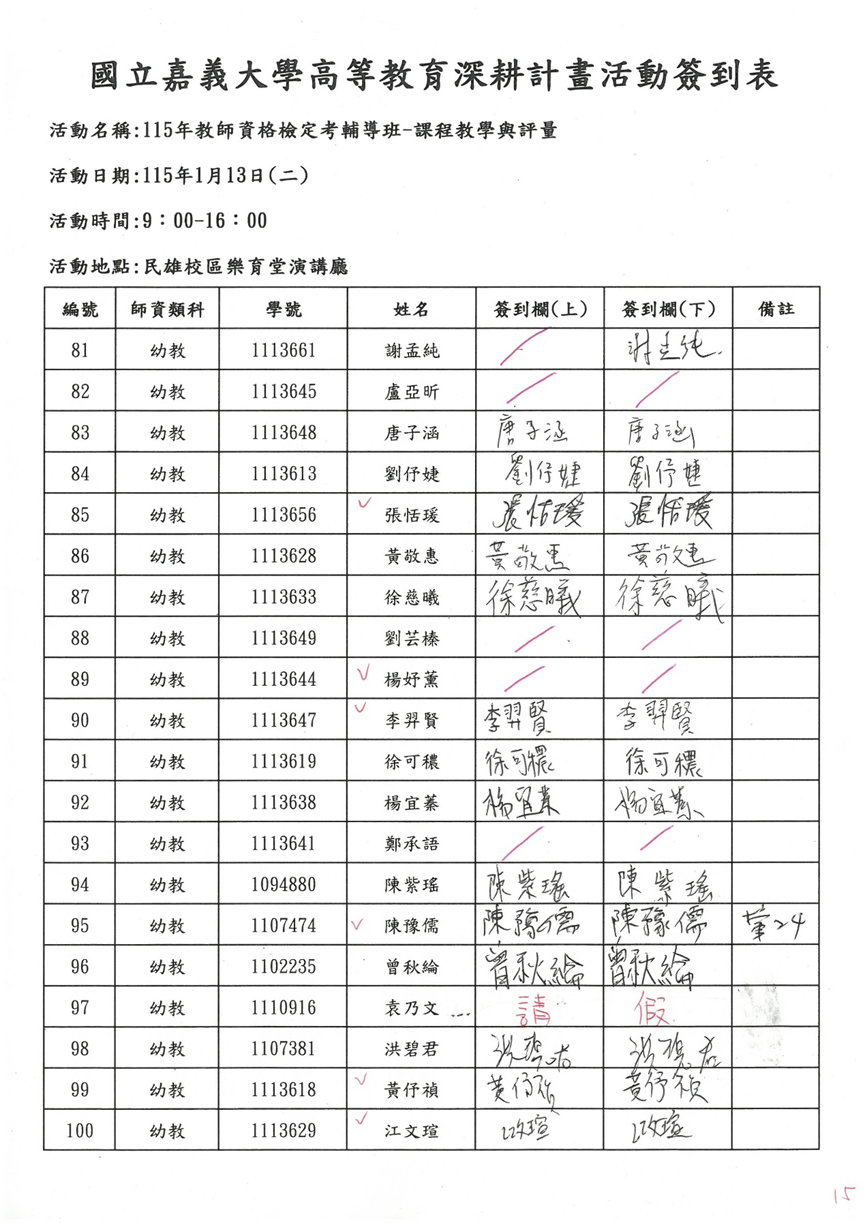 國立嘉義大學高等教育深耕計畫活動簽到表
活動名稱:115年教師資格檢定考輔導班-課程教學與評量
活動日期:115年1月13日(二)
活動時間:9：00-16：00
活動地點:民雄校區樂育堂演講廳
編號 師資類科 學號 姓名 簽到欄(上) 簽到欄(下) 備註
81 幼教 1113661 謝孟純 謝孟純
82 幼教 1113645 盧亞昕
83 幼教 1113648 唐子涵 唐子涵 唐子涵
84 幼教 1113613 劉伃婕 劉伃婕 劉伃婕
85 幼教 1113656 張恬瑗 張恬瑗 張恬瑗
86 幼教 1113628 黃敬惠 黃敬惠 黃敬惠
87 幼教 1113633 徐慈曦 徐慈曦 徐慈曦
88 幼教 1113649 劉芸榛
89 幼教 1113644 楊妤薰
90 幼教 1113647 李羿賢 李羿賢 李羿賢
91 幼教 1113619 徐可穠 徐可穠 徐可穠
92 幼教 1113638 楊宜蓁 楊宜蓁 楊宜蓁
93 幼教 1113641 鄭承語
94 幼教 1094880 陳紫瑤 陳紫瑤 陳紫瑤
95 幼教 1107474 陳豫儒 陳豫儒 陳豫儒 24
96 幼教 1102235 曾秋綸 曾秋綸 曾秋綸
97 幼教 1110916 袁乃文 ... 請 假
98 幼教 1107381 洪碧君 洪碧君 洪碧君
99 幼教 1113618 黃伃禎 黃伃禎 黃伃禎
100 幼教 1113629 江文瑄 江文瑄 江文瑄
15